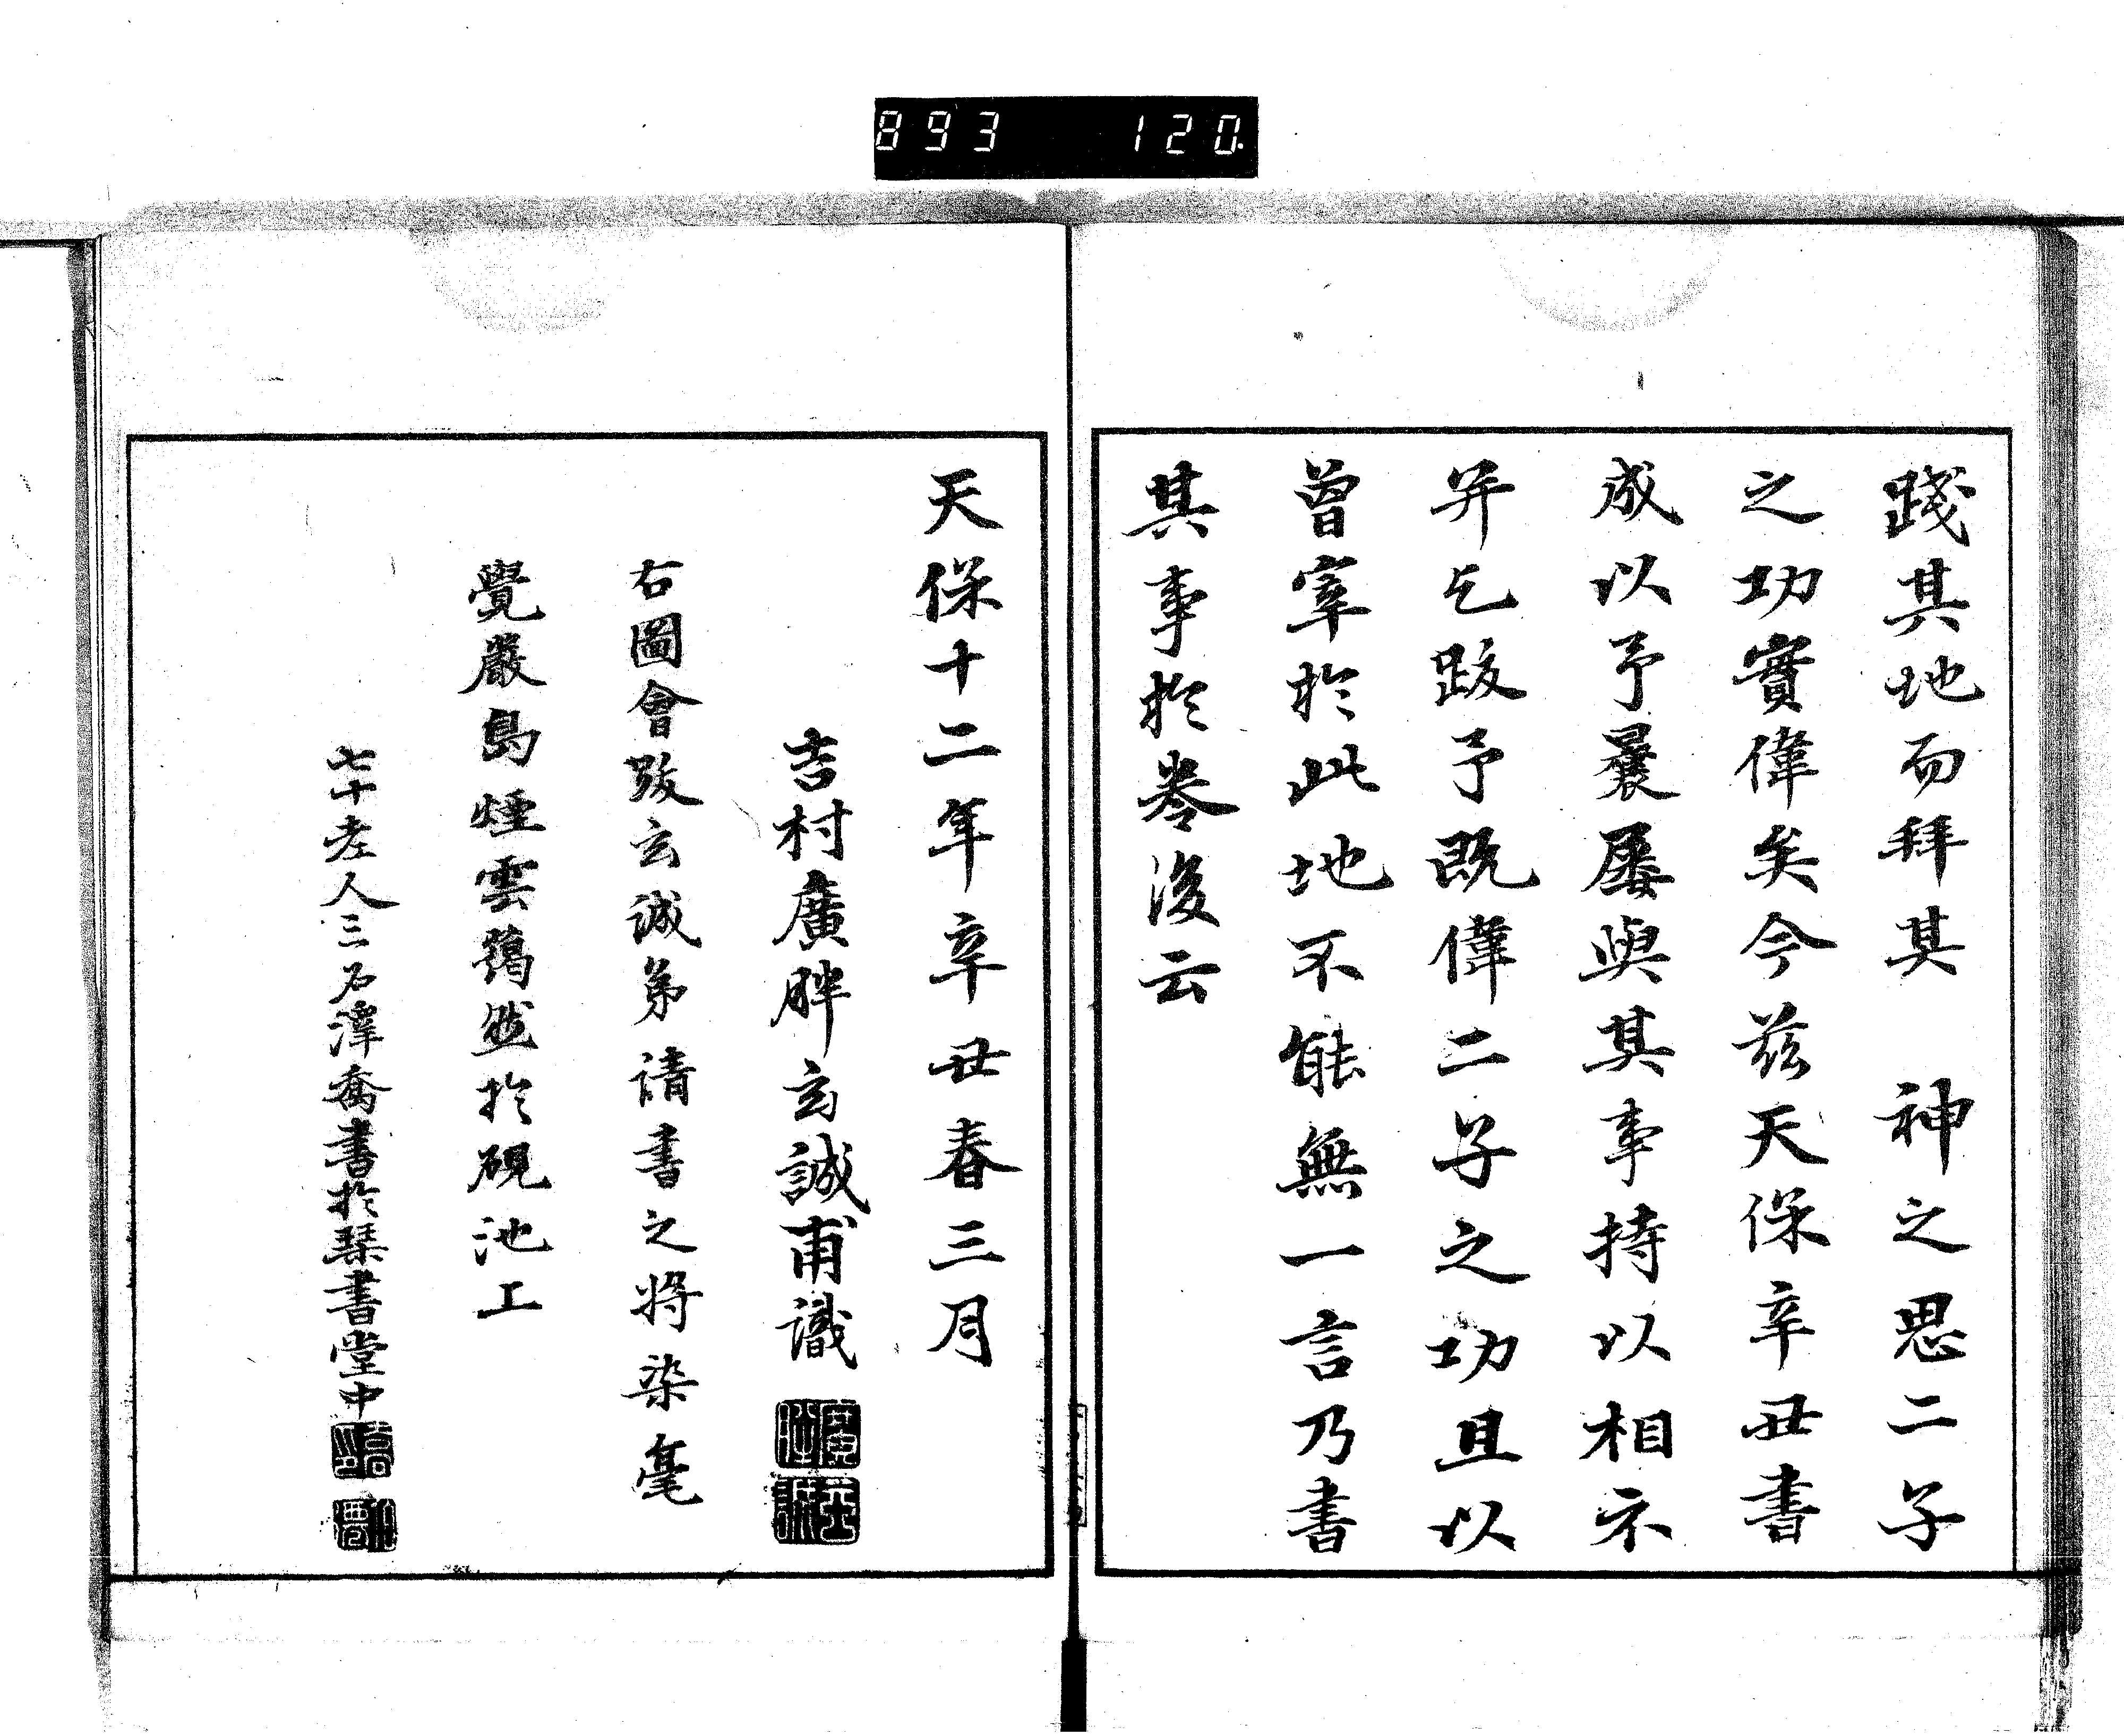 893 120
踐其地而拜其 神之思二子
之功實偉矣今茲天保辛丑書
成以予曩屡與其事持以相示
并乞跋予既偉二子之功且以
曾宰於此地不能無一言乃書
其事於卷後云
天保十二年辛丑春三月
吉村廣胖玄誠甫識
右圖會跋玄誠弟請書之將染毫
覺嚴島煙雲藹然於硯池上
七十老人三石澤喬書於琹書堂中